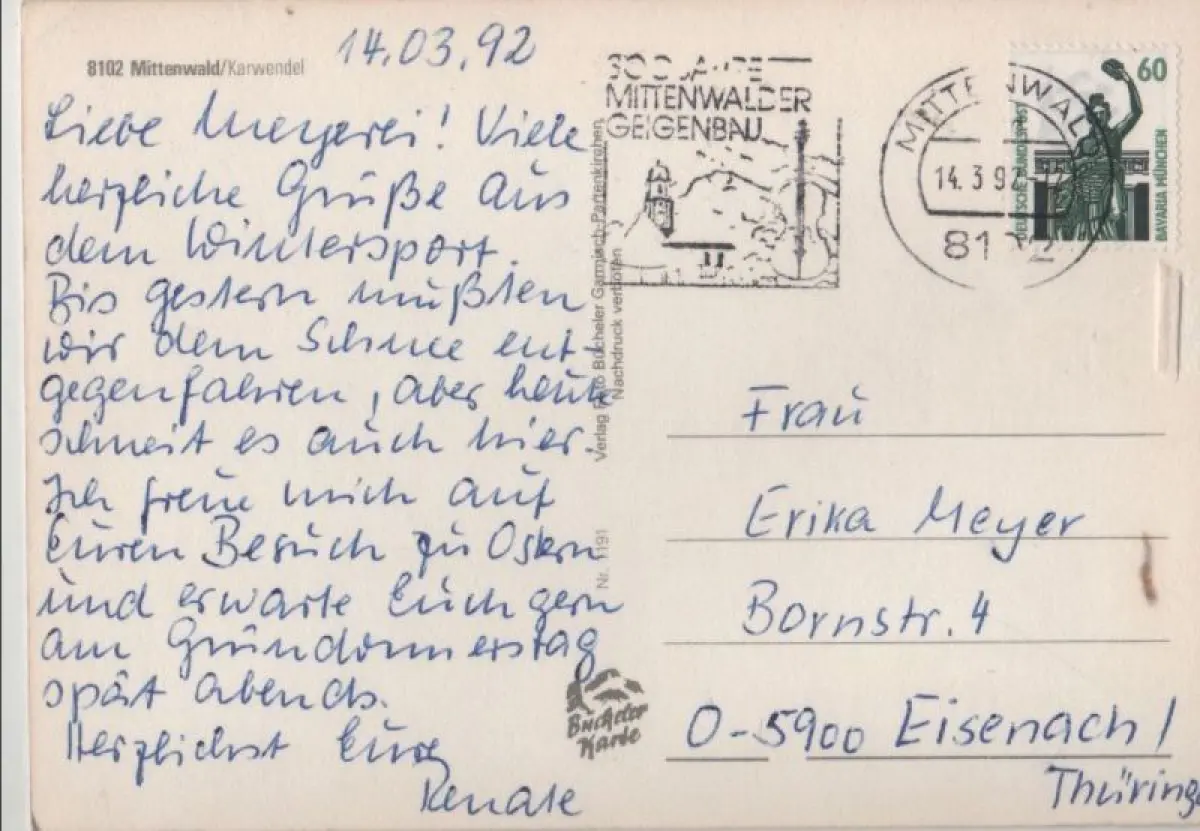 14.03.92
8102 Mittenwald/Karwendel
Liebe Meyerei! Viele
herzliche Grüße aus
dem Wintersport.
Bis gestern mußten
wir dem Schnee ent-
gegenfahren, aber heute
schneit es auch hier.
Ich freue mich auf
Euren Besuch zu Ostern
und erwarte Euch gern
am Gründonnerstag
spät abends.
Herzlichst Eure
Renate
Verlag Foto Bücheler Garmisch-Partenkirchen
Nachdruck verboten
Nr. 1191
Bücheler
Karte
300 JAHRE
MITTENWALDER
GEIGENBAU
MITTENWALD
14.3.92
81 2
60
DEUTSCHE BUNDESPOST
BAVARIA MÜNCHEN
Frau
Erika Meyer
Bornstr. 4
O-5900 Eisenach/
Thüringe